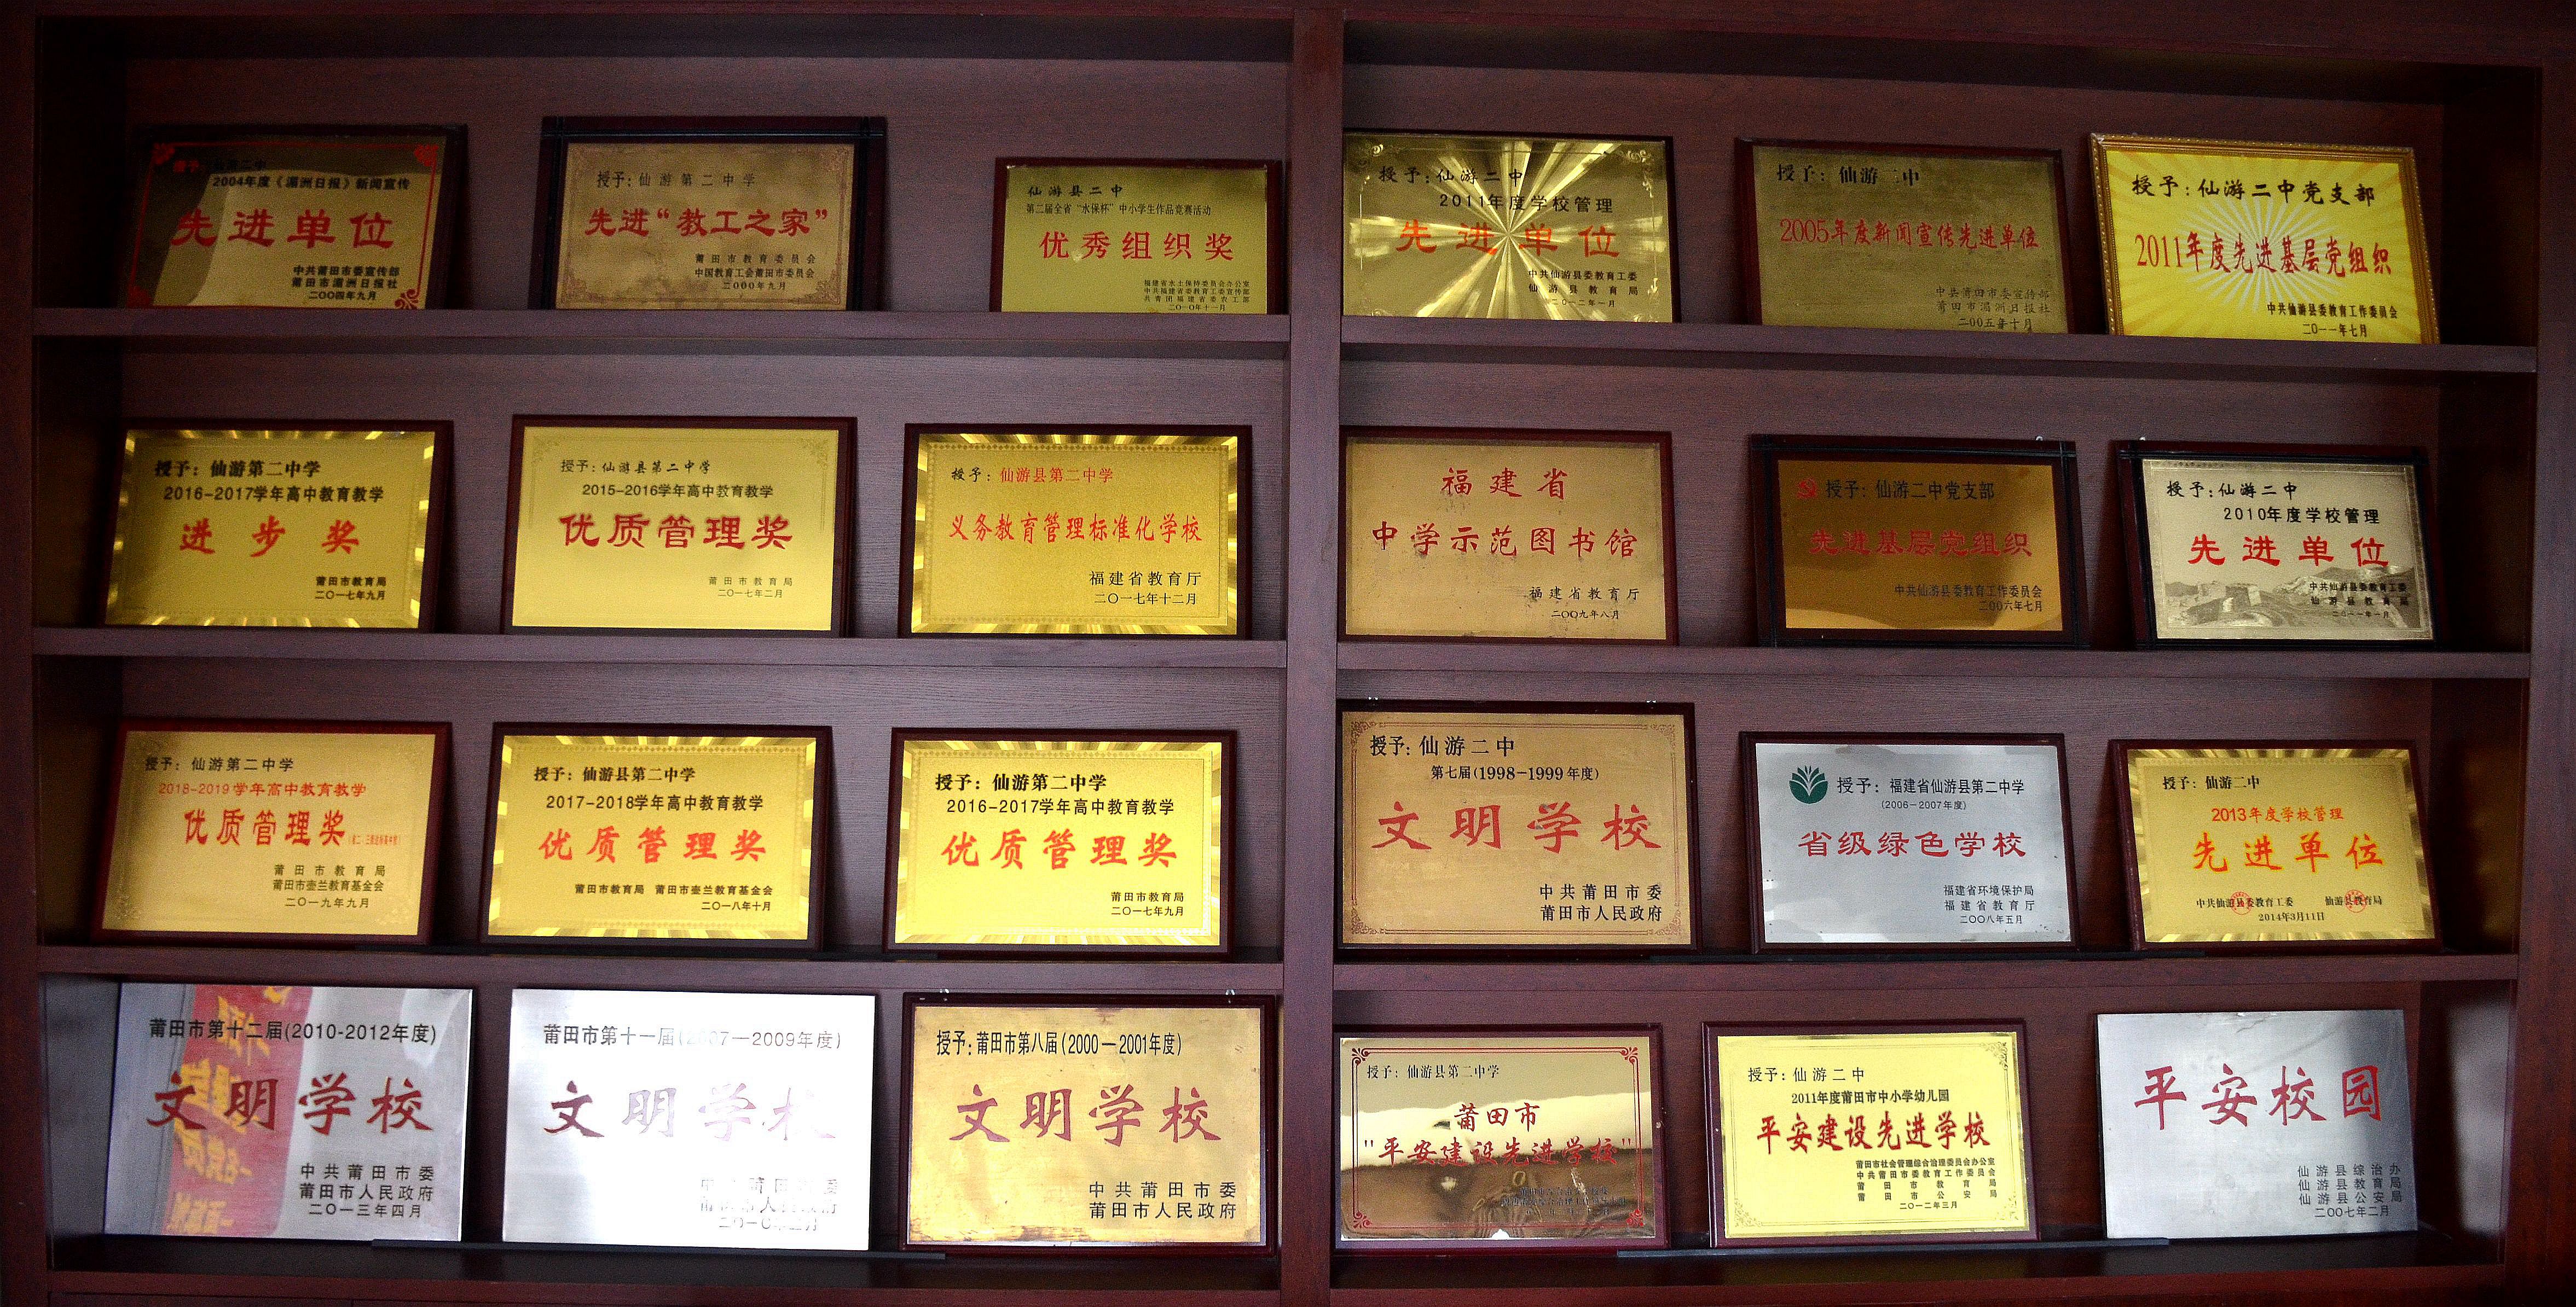 授予:仙游二中
2004年度《湄洲日报》新闻宣传
先进单位
中共莆田市委宣传部
莆田市湄洲日报社
二〇〇四年九月
授予:仙游第二中学
先进“教工之家”
莆田市教育委员会
中国教育工会莆田市委员会
二000年九月
仙游县二中
第二届全省“水保杯”中小学生作品竞赛活动
优秀组织奖
福建省水土保持委员会办公室
中共福建省委教育工委宣传部
共青团福建省委农工部
二〇一〇年十一月
授予:仙游二中
2011年度学校管理
先进单位
中共仙游县委教育工委
仙游县教育局
二〇一二年一月
授予:仙游二中
2005年度新闻宣传先进单位
中共莆田市委宣传部
莆田市湄洲日报社
二00五年十月
授予:仙游二中党支部
2011年度先进基层党组织
中共仙游县委教育工作委员会
二〇一一年七月
授予:仙游第二中学
2016-2017学年高中教育教学
进步奖
莆田市教育局
二〇一七年九月
授予:仙游县第二中学
2015-2016学年高中教育教学
优质管理奖
莆田市教育局
二〇一七年二月
授予:仙游县第二中学
义务教育管理标准化学校
福建省教育厅
二〇一七年十二月
福建省
中学示范图书馆
福建省教育厅
二〇〇九年八月
授予:仙游二中党支部
先进基层党组织
中共仙游县委教育工作委员会
二00六年七月
授予:仙游二中
2010年度学校管理
先进单位
中共仙游县委教育工委
仙游县教育局
二〇一一年一月
授予:仙游第二中学
2018-2019学年高中教育教学
优质管理奖
莆田市教育局
莆田市壶兰教育基金会
二〇一九年九月
授予:仙游县第二中学
2017-2018学年高中教育教学
优质管理奖
莆田市教育局 莆田市壶兰教育基金会
二〇一八年十月
授予:仙游第二中学
2016-2017学年高中教育教学
优质管理奖
莆田市教育局
二〇一七年九月
授予:仙游二中
第七届(1998-1999年度)
文明学校
中共莆田市委
莆田市人民政府
授予:福建省仙游县第二中学
(2006-2007年度)
省级绿色学校
福建省环境保护局
福建省教育厅
二〇〇八年五月
授予:仙游二中
2013年度学校管理
先进单位
中共仙游县委教育工委 仙游县教育局
2014年3月11日
莆田市第十二届(2010-2012年度)
文明学校
中共莆田市委
莆田市人民政府
二〇一三年四月
莆田市第十一届(2007—2009年度)
文明学校
中共莆田市委
莆田市人民政府
授予:莆田市第八届(2000—2001年度)
文明学校
中共莆田市委
莆田市人民政府
授予:仙游县第二中学
莆田市
"平安建设先进学校"
授予:仙游二中
2011年度莆田市中小学幼儿园
平安建设先进学校
莆田市社会管理综合治理委员会办公室
中共莆田市委教育工作委员会
莆田市教育局
莆田市公安局
二〇一二年三月
平安校园
仙游县综治办
仙游县教育局
仙游县公安局
二00七年二月